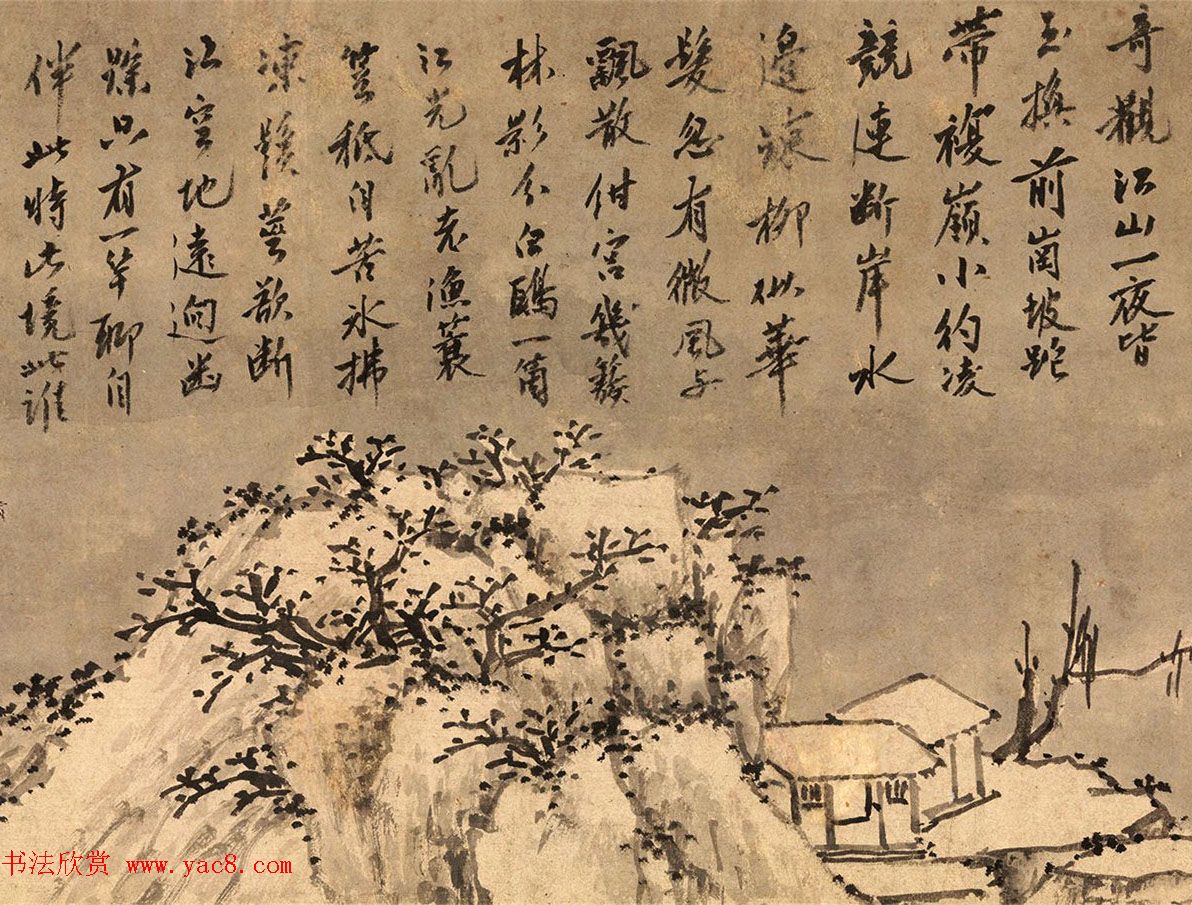 奇觀江山一夜皆
玉換前崗坡跎
帶複嶺小約凌
競連断岸水
邊疎柳似華
髮忽有微風与
飄散幾簇
林影分白鷗一箇
江光亂老漁蓑
笠秪自苦冰拂
凍鬚莖欲断
江空地遠迥幽
蹤只有一竿聊自
伴此時此境此誰
书法欣赏 www.yac8.com